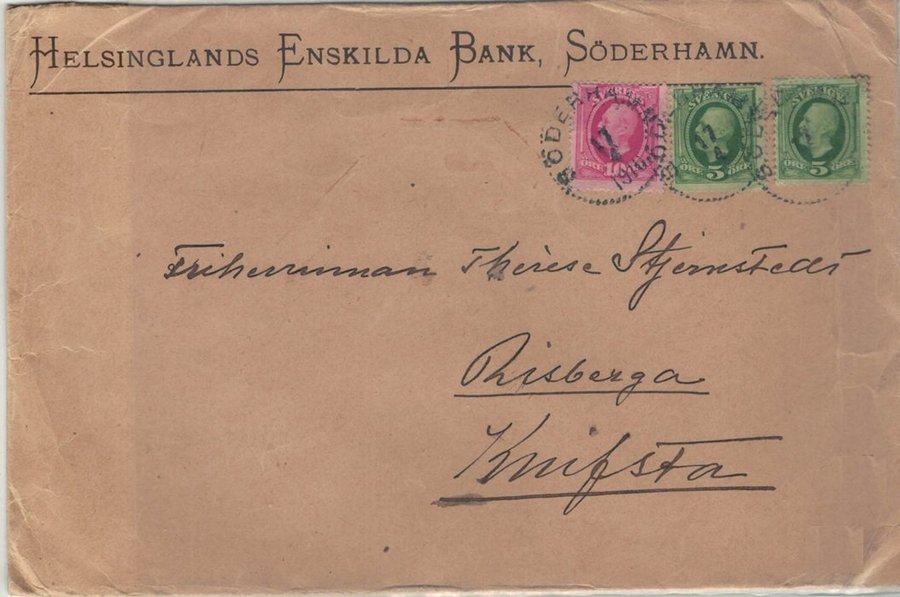 HELSINGLANDS ENSKILDA BANK, SÖDERHAMN.
SVERIGE SVERIGE SVERIGE
SÖDERHAMN
17 17
4 4
1910
ÖRE 10 ÖRE 5 ÖRE ÖRE 5 ÖRE
Friherrinnan Thérèse Stjernstedt
Risberga
Knifsta